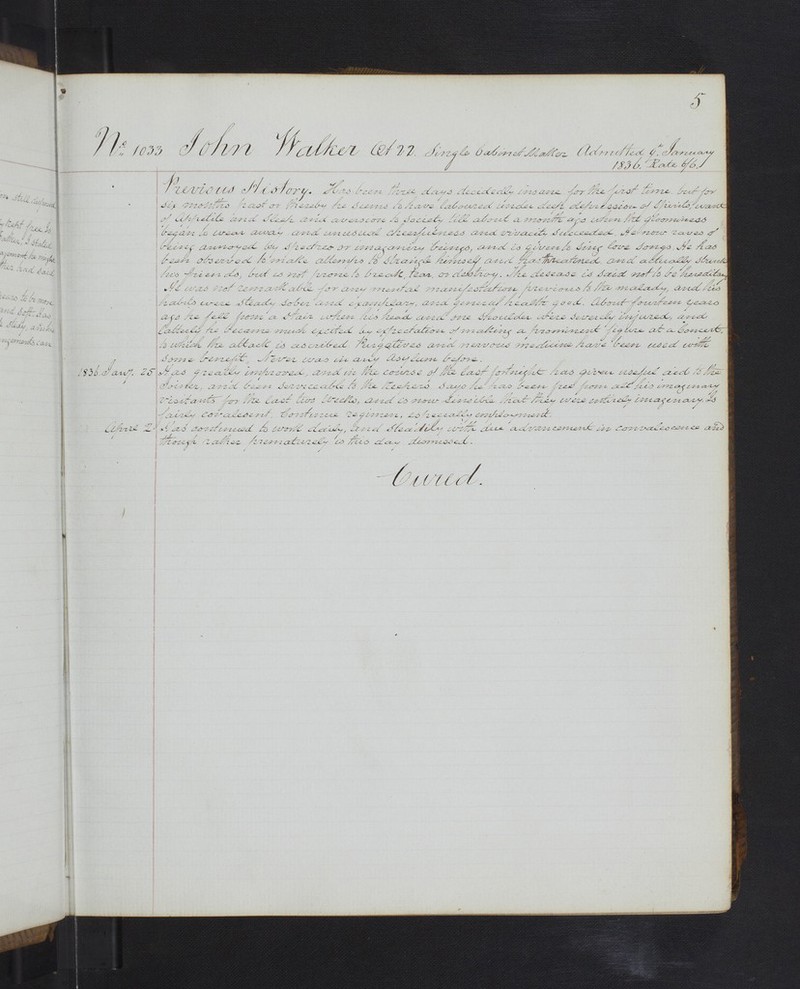 5
No. 1033 John Walker Æt 22. Single Cabinet Maker Admitted 6th January
1836. Rate 6/6
Previous History. Has been three days decidedly insane for the first time but for
six months past or thereby he seems to have laboured under deep depression of spirits, want
of appetite and sleep and aversion to society till about a month ago when the gloominess
began to wear away and unusual cheerfulness and vivacity succeeded. He now raves of
being annoyed by spectres or imaginary beings, and is given to sing love songs. He has
been observed to make attempts to strangle himself and has threatened and actually struck
his friends, but is not prone to break, tear, or destroy. The disease is said not to be hereditary
He was not remarkable for any mental manifestation previous to the malady, and his
habits were steady sober and exemplary, and general health good. About fourteen years
ago he fell from a Stair when his head and one shoulder were severely injured, and
latterly he became much excited by expectation of making a prominent figure at a Concert,
to which the attack is ascribed. Purgatives and nervous medicine have been used with
some benefit. Never was in any Asylum before.
1836 Jany. 25 Has greatly improved, and in the course of the last fortnight has given useful aid to the
Joiner, and been serviceable to the Keepers. Says he has been free from all his imaginary
visitants for the last two weeks, and is now sensible that they were entirely imaginary. Is
fairly convalescent. Continue regimen, especially employment.
April 2 Has continued to work daily, and steadily with due advancement in convalescence and
though rather prematurely is this day dismissed.
Cured.